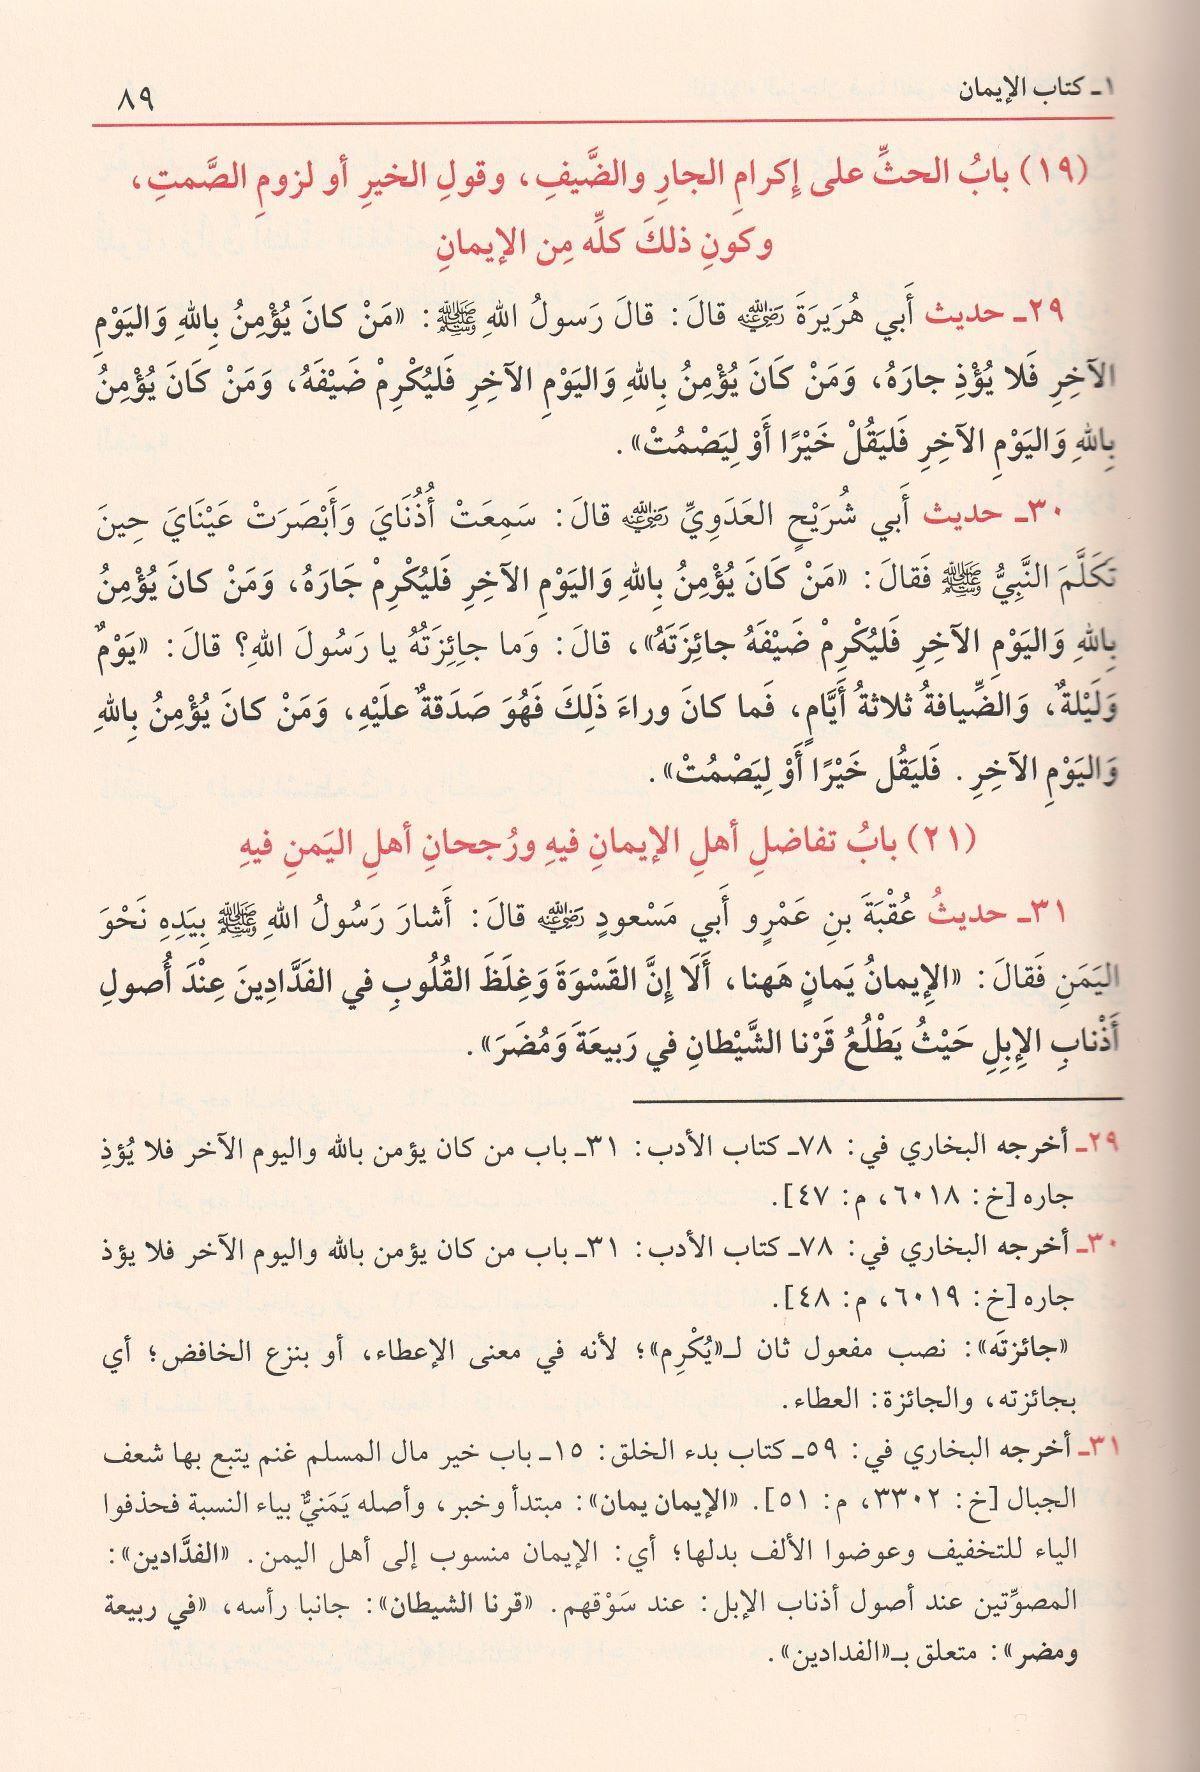 ١ـ كتاب الإيمان
٨٩
(١٩) بابُ الحثِّ على إكرامِ الجارِ والضَّيفِ، وقولِ الخيرِ أو لزومِ الصَّمتِ،
وكونِ ذلكَ كلِّه مِن الإيمانِ
٢٩ـ حديث أَبي هُرَيرَةَ ﵁ قالَ: قالَ رَسولُ اللهِ ﷺ: «مَنْ كانَ يُؤْمِنُ بِاللهِ وَاليَوْمِ
الآخِرِ فَلا يُؤْذِ جارَهُ، وَمَنْ كَانَ يُؤْمِنُ بِاللهِ وَاليَوْمِ الآخِرِ فَليُكْرِمْ ضَيْفَهُ، وَمَنْ كَانَ يُؤْمِنُ
بِاللهِ وَاليَوْمِ الآخِرِ فَليَقُلْ خَيْرًا أَوْ لِيَصْمُتْ».
٣٠ـ حديث أَبي شُرَيْحٍ العَدَوِيِّ ﵁ قالَ: سَمِعَتْ أُذُنَايَ وَأَبْصَرَتْ عَيْنَايَ حِينَ
تَكَلَّمَ النَّبِيُّ ﷺ فَقالَ: «مَنْ كَانَ يُؤْمِنُ بِاللهِ وَاليَوْمِ الآخِرِ فَليُكْرِمْ جَارَهُ، وَمَنْ كانَ يُؤْمِنُ
بِاللهِ وَاليَوْمِ الآخِرِ فَليُكْرِمْ ضَيْفَهُ جائِزَتَهُ»، قالَ: وَما جاِئِزَتُهُ يا رَسُولَ اللهِ؟ قالَ: «يَوْمٌ
وَلَيْلةٌ، وَالضِّيافةُ ثلاثةُ أَيَّامٍ، فَما كانَ وراءَ ذَلِكَ فَهُوَ صَدَقةٌ علَيْهِ، وَمَنْ كانَ يُؤْمِنُ بِاللهِ
وَاليَوْمِ الآخِرِ . فَليَقُل خَيْرًا أَوْ لِيَصْمُتْ».
(٢١) بابُ تفاضلِ أهلِ الإيمانِ فيهِ ورُجحانِ أهلِ اليَمنِ فيهِ
٣١ـ حديثُ عُقْبَةَ بنِ عَمْرٍو أَبي مَسْعودٍ ﵁ قالَ: أَشارَ رَسُولُ اللهِ ﷺ بِيَدِهِ نَحْوَ
اليَمَنِ فَقالَ: «الإيمانُ يَمانٍ هَهنا، أَلَا إِنَّ القَسْوَةَ وَغِلَظَ القُلُوبِ في الفَدَّادِينَ عِنْدَ أُصولِ
أَذْنابِ الإِبِلِ حَيْثُ يَطْلُعُ قَرْنا الشَّيْطانِ في رَبِيعَةَ وَمُضَرَ».
٢٩ـ أخرجه البخاري في: ٧٨ـ كتاب الأدب: ٣١ـ باب من كان يؤمن بالله واليوم الآخر فلا يُؤذِ
جاره [خ: ٦٠١٨، م: ٤٧].
٣٠ـ أخرجه البخاري في: ٧٨ـ كتاب الأدب: ٣١ـ باب من كان يؤمن بالله واليوم الآخر فلا يؤذ
جاره [خ: ٦٠١٩، م: ٤٨].
«جائزتَه»: نصب مفعول ثان لـ«يُكْرِم»؛ لأنه في معنى الإعطاء، أو بنزع الخافض؛ أي
بجائزته، والجائزة: العطاء.
٣١ـ أخرجه البخاري في: ٥٩ـ كتاب بدء الخلق: ١٥ـ باب خير مال المسلم غنم يتبع بها شعف
الجبال [خ: ٣٣٠٢، م: ٥١]. «الإيمان يمان»: مبتدأ وخبر، وأصله يَمَنيٌّ بياء النسبة فحذفوا
الياء للتخفيف وعوضوا الألف بدلها؛ أي: الإيمان منسوب إلى أهل اليمن. «الفدَّادين»:
المصوِّتين عند أصول أذناب الإبل: عند سَوْقهم. «قرنا الشيطان»: جانبا رأسه، «في ربيعة
ومضر»: متعلق بـ«الفدادين».